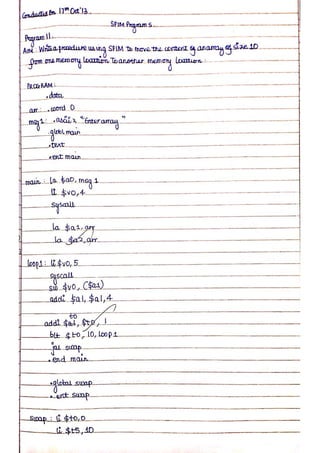 Conducted on 17th Oct'13.
SPIM Programs.
Program 11.
Aim: Write a procedure using SPIM to move the content of an array of size 10
from one memory location to another memory location.
PROGRAM:
.data
arr: .word 0
msg1: .asciiz "Enter array"
.globl main
.text
.ent main
main: la $a0, msg1
li $v0,4
syscall
la $a1, arr
la $a2, arr
loop1: li $v0, 5
syscall
sw $v0, ($a1)
addi $a1, $a1, 4
t0
addi $a1, $t0, 1
blt $t0, 10, loop1
jal swap
.end main
.global swap
.ent swap
swap: li $t0,0
li $t5, 10